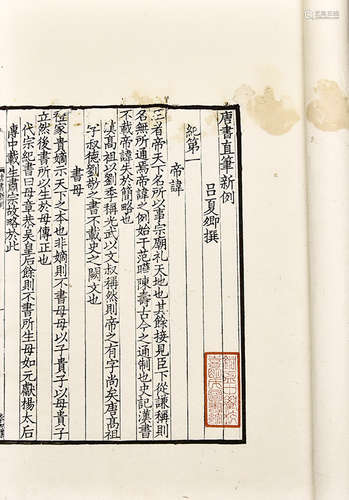 唐書直筆新例
呂夏卿撰
紀第一
帝諱
王者帝天下名所以事宗廟礼天地也其餘接見臣下從謙稱則
名無所通焉帝諱之例始于范曄陳壽古今之通制也史記漢書
不載帝諱失於簡略也
漢高祖以劉季稱光武以文叔稱然則帝之有字尚矣唐高祖
字叔德劉昫之書不載史之闕文也
書母
冢貴嫡示天下之本也非嫡則不書母母以子貴子以母貴子
立然後書所以正於母傳正也
代宗紀書曰母章恭矣皇后餘則不書所生母如元獻楊太后
傳中載生肅宗故略於此